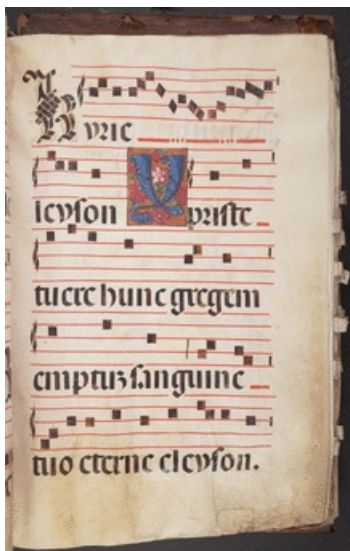 Kyrie
leyson Xpriste
tuere hunc gregem
emptuz sanguine
tuo eterne eleyson.